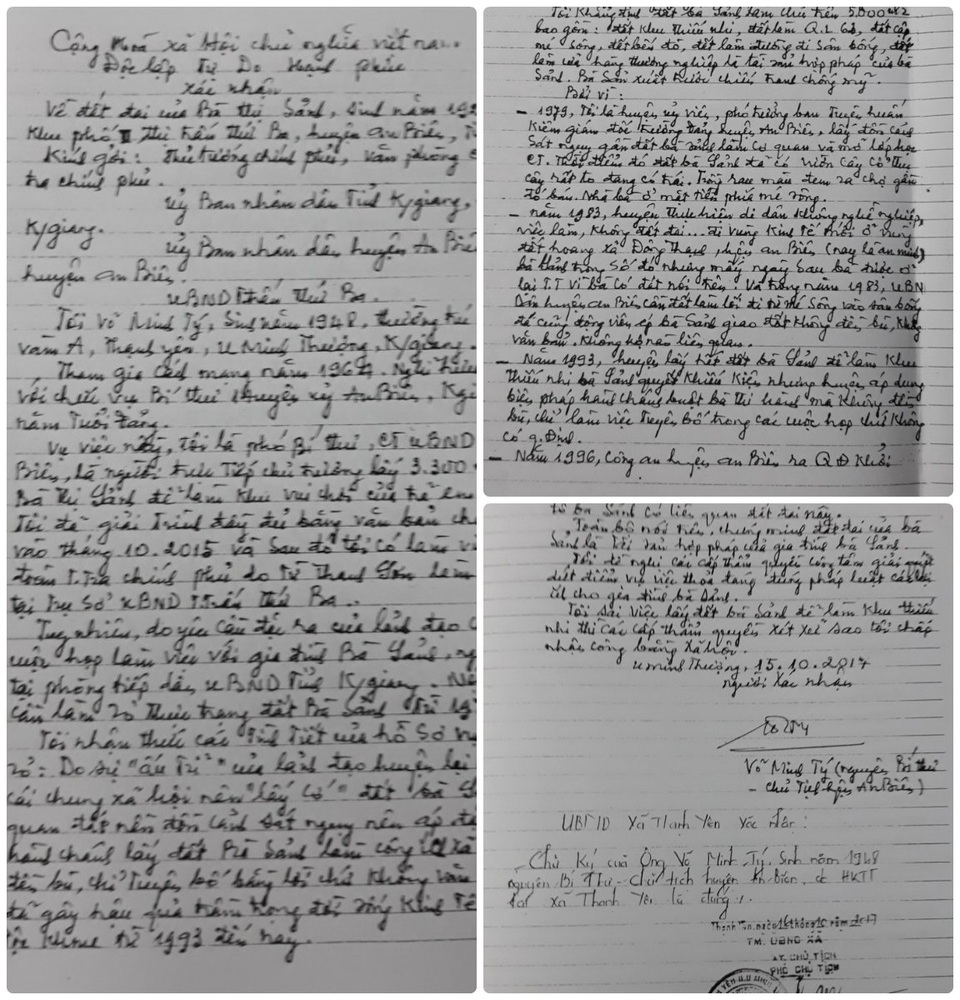 Cộng hoà xã Hội chủ nghĩa việt nam
Độc lập Tự Do Hạnh phúc
xác nhận
Về đất đai của Bà thị Sảnh, sinh năm 192
khu phố II thị trấn thứ Ba, huyện An Biên, T
Kính gởi: thủ tướng chính phủ, văn phòng
tra chính phủ.
ủy Ban nhân dân Tỉnh K/giang,
K/giang.
ủy Ban nhân dân huyện An Biê
huyện an Biên.
UBND T.trấn thứ Ba.
Tôi Võ Minh Tý, Sinh năm 1948, thường trú
vàm A, Thạnh yên, U Minh Thượng, K/giang.
Tham gia Cách mạng năm 1964. Nghỉ hưu
với chức vụ Bí thư Huyện ủy An Biên, K/gi
năm Tuổi Đảng.
Vụ việc này, tôi là phó Bí thư, CT UBND
Biên, là người trực Tiếp chủ trương lấy 3.300
Bà Thị Sảnh để làm khu vui chơi của trẻ em
Tôi đã giải Trình đầy đủ bằng văn bản ch
vào tháng 10.2015 và Sau đó tôi có làm vi
đoàn T.Tra chính phủ do Lê Thanh Sơn làm
tại trụ Sở UBND T.trấn thứ Ba.
Tuy nhiên, do yêu cầu đặt ra của lãnh đạo
cuộc họp làm việc với gia đình Bà Sảnh, ng
tại phòng tiếp dân UBND Tỉnh K/giang. N
cần làm rõ thực trạng đất Bà Sảnh Từ 19
Tôi nhận thức các Tình Tiết của hồ Sơ vụ
rỏ: Do sự "ấu Trỉ" của lãnh đạo huyện lại
cái chung xã hội nên "lấy Cớ" đất bà S
quan đất nền đồn Cảnh Sát nguỵ nên áp d
hành chánh lấy đất Bà Sảnh làm công xã
đền bù, chỉ Tuyên bố bằng lời chứ Không văn
đã gây hậu quả trầm trọng đời sống Kinh Tế
từ 1993 đến nay.
Tôi Khẳng định đất bà Sảnh làm chủ trên 5.000 m2
bao gồm: đất khu Thiếu nhi, đất làm Q.L 63, đất cặp
mé Sông, đất bến đò, đất làm đường đi Sân bóng, đất
làm cửa hàng thương nghiệp là tài sản hợp pháp của bà
Sảnh. Bà Sản xuất trước chiến tranh chống mỹ.
Bởi vì:
- 1979, Tôi là huyện ủy viên, phó trưởng ban Tuyên huấn
Kiêm giám đốc trường Đảng huyện An Biên, lấy đồn Cảnh
Sát nguỵ gần đất bà Sảnh làm Cơ quan và mở lớp học
CT. Thời điểm đó đất bà Sảnh đã có vườn Cây Cổ thụ
cây rất to đang có trái. Trồng rau màu đem ra chợ gần
đó bán. Nhà bà ở mặt tiền phía mé sông.
- năm 1983, huyện thực hiện di dân không nghề nghiệp,
việc làm, không đất đai... đi vùng Kinh Tế mới ở vùng
đất hoang xã Đông Thạnh, huyện an Biên (nay là an minh)
bà Sảnh trong Số đó nhưng mấy ngày sau bà được ở
lại T.T vì bà có đất nói trên. Và trong năm 1983, UBN
Dân huyện an Biên cần đất làm lối đi từ mé Sông vào sân bóng
đã cưỡng động viên ép bà Sảnh giao đất không đền bù, không
văn bản, không hộ nào liên quan.
- Năm 1993, huyện lấy hết đất bà Sảnh để làm Khu
Thiếu nhi bà Sảnh quyết Khiếu Kiện nhưng huyện áp dụng
biện pháp hành chánh buộc bà thi hành mà không đền
bù, chỉ làm việc tuyên bố trong các cuộc họp chứ Không
có q.định.
- Năm 1996, Công an huyện an Biên ra QĐ Khởi
tố bà Sảnh có liên quan đất đai này.
Toàn bộ nói trên, chứng minh đất đai của bà
Sảnh là tài sản hợp pháp của gia đình bà Sảnh.
Tôi đề nghị các cấp thẩm quyền công tâm giải quyết
dứt điểm vụ việc thoả đáng đúng pháp luật có lợi
ích cho gia đình bà Sảnh.
Tôi sai việc lấy đất bà Sảnh để làm khu thiếu
nhi thì các cấp thẩm quyền xét xử sao tôi chấp
nhận công bằng Xã hội.
U minh Thượng, 15.10.2017
người xác nhận
Võ Minh Tý (nguyên Bí thư
- Chủ Tịch huyện An Biên)
UBND Xã Thạnh Yên Xác nhận:
Chữ Ký của Ông Võ Minh Tý, Sinh năm 1948
nguyên Bí Thư - Chủ tịch huyện An Biên, có HKTT
tại xã Thạnh Yên là đúng.
Thạnh Yên, ngày 16 tháng 10 năm 2017
TM. UBND XÃ
KT. CHỦ TỊCH
PHÓ CHỦ TỊCH